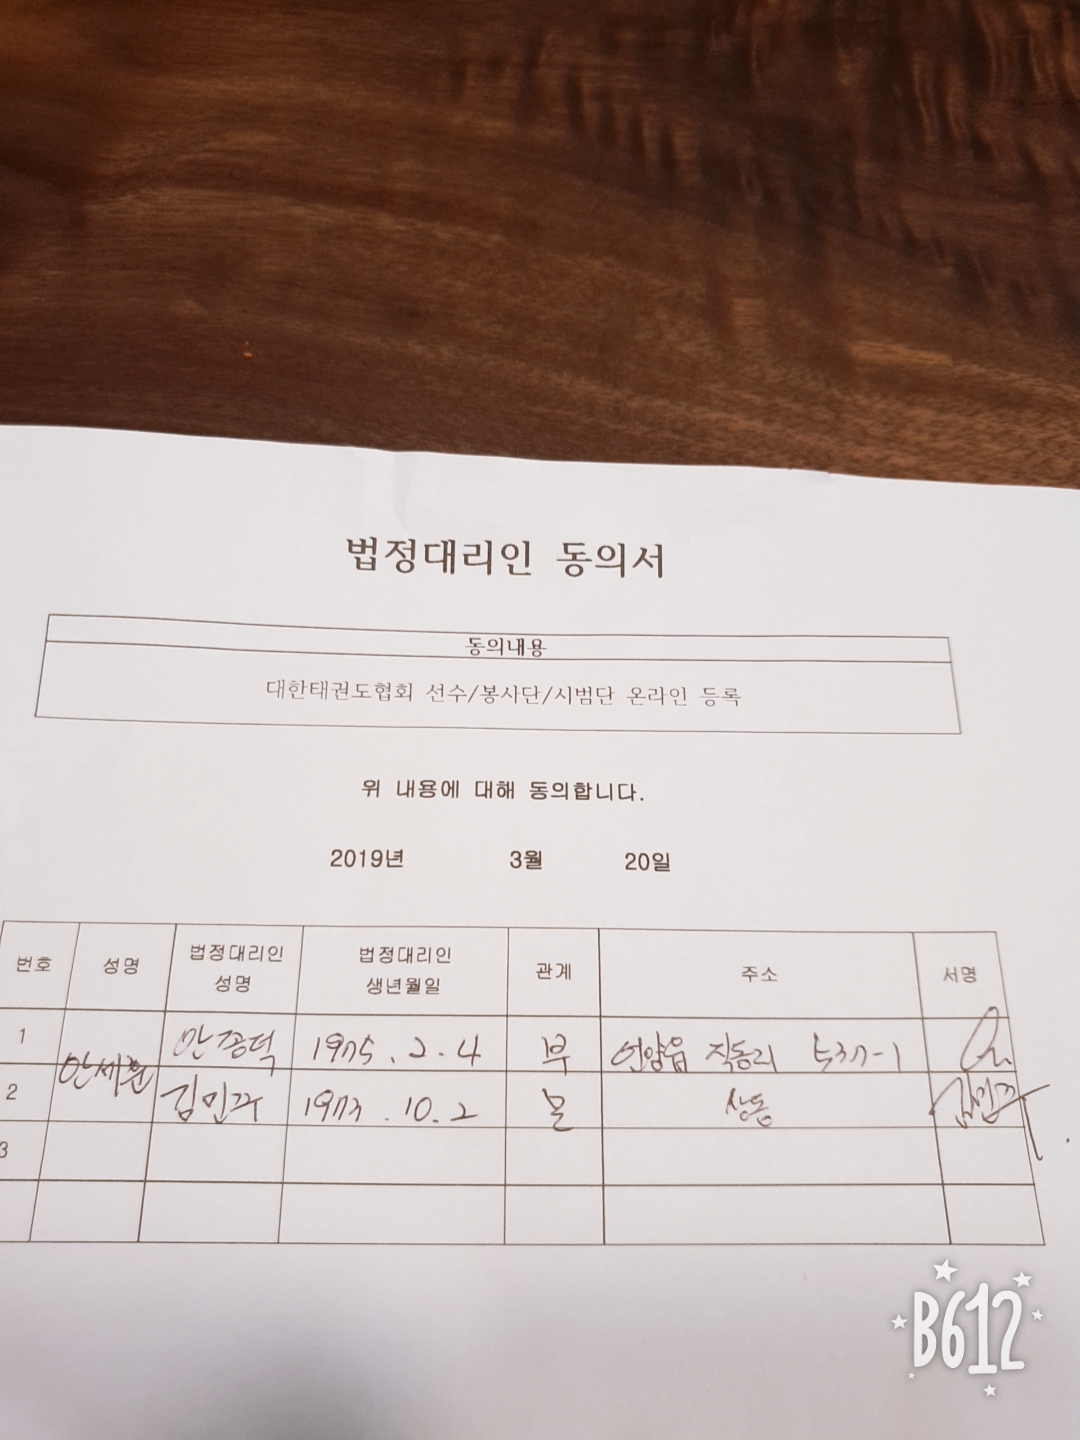 법정대리인 동의서
동의내용
대한태권도협회 선수/봉사단/시범단 온라인 등록
위 내용에 대해 동의합니다.
2019년 3월 20일
번호 성명 법정대리인 성명 법정대리인 생년월일 관계 주소 서명
1 안세훈 안경덕 1975.2.4 부 언양읍 직동리
2 김민주 1973.10.2 모 상동 김민주
3
B612